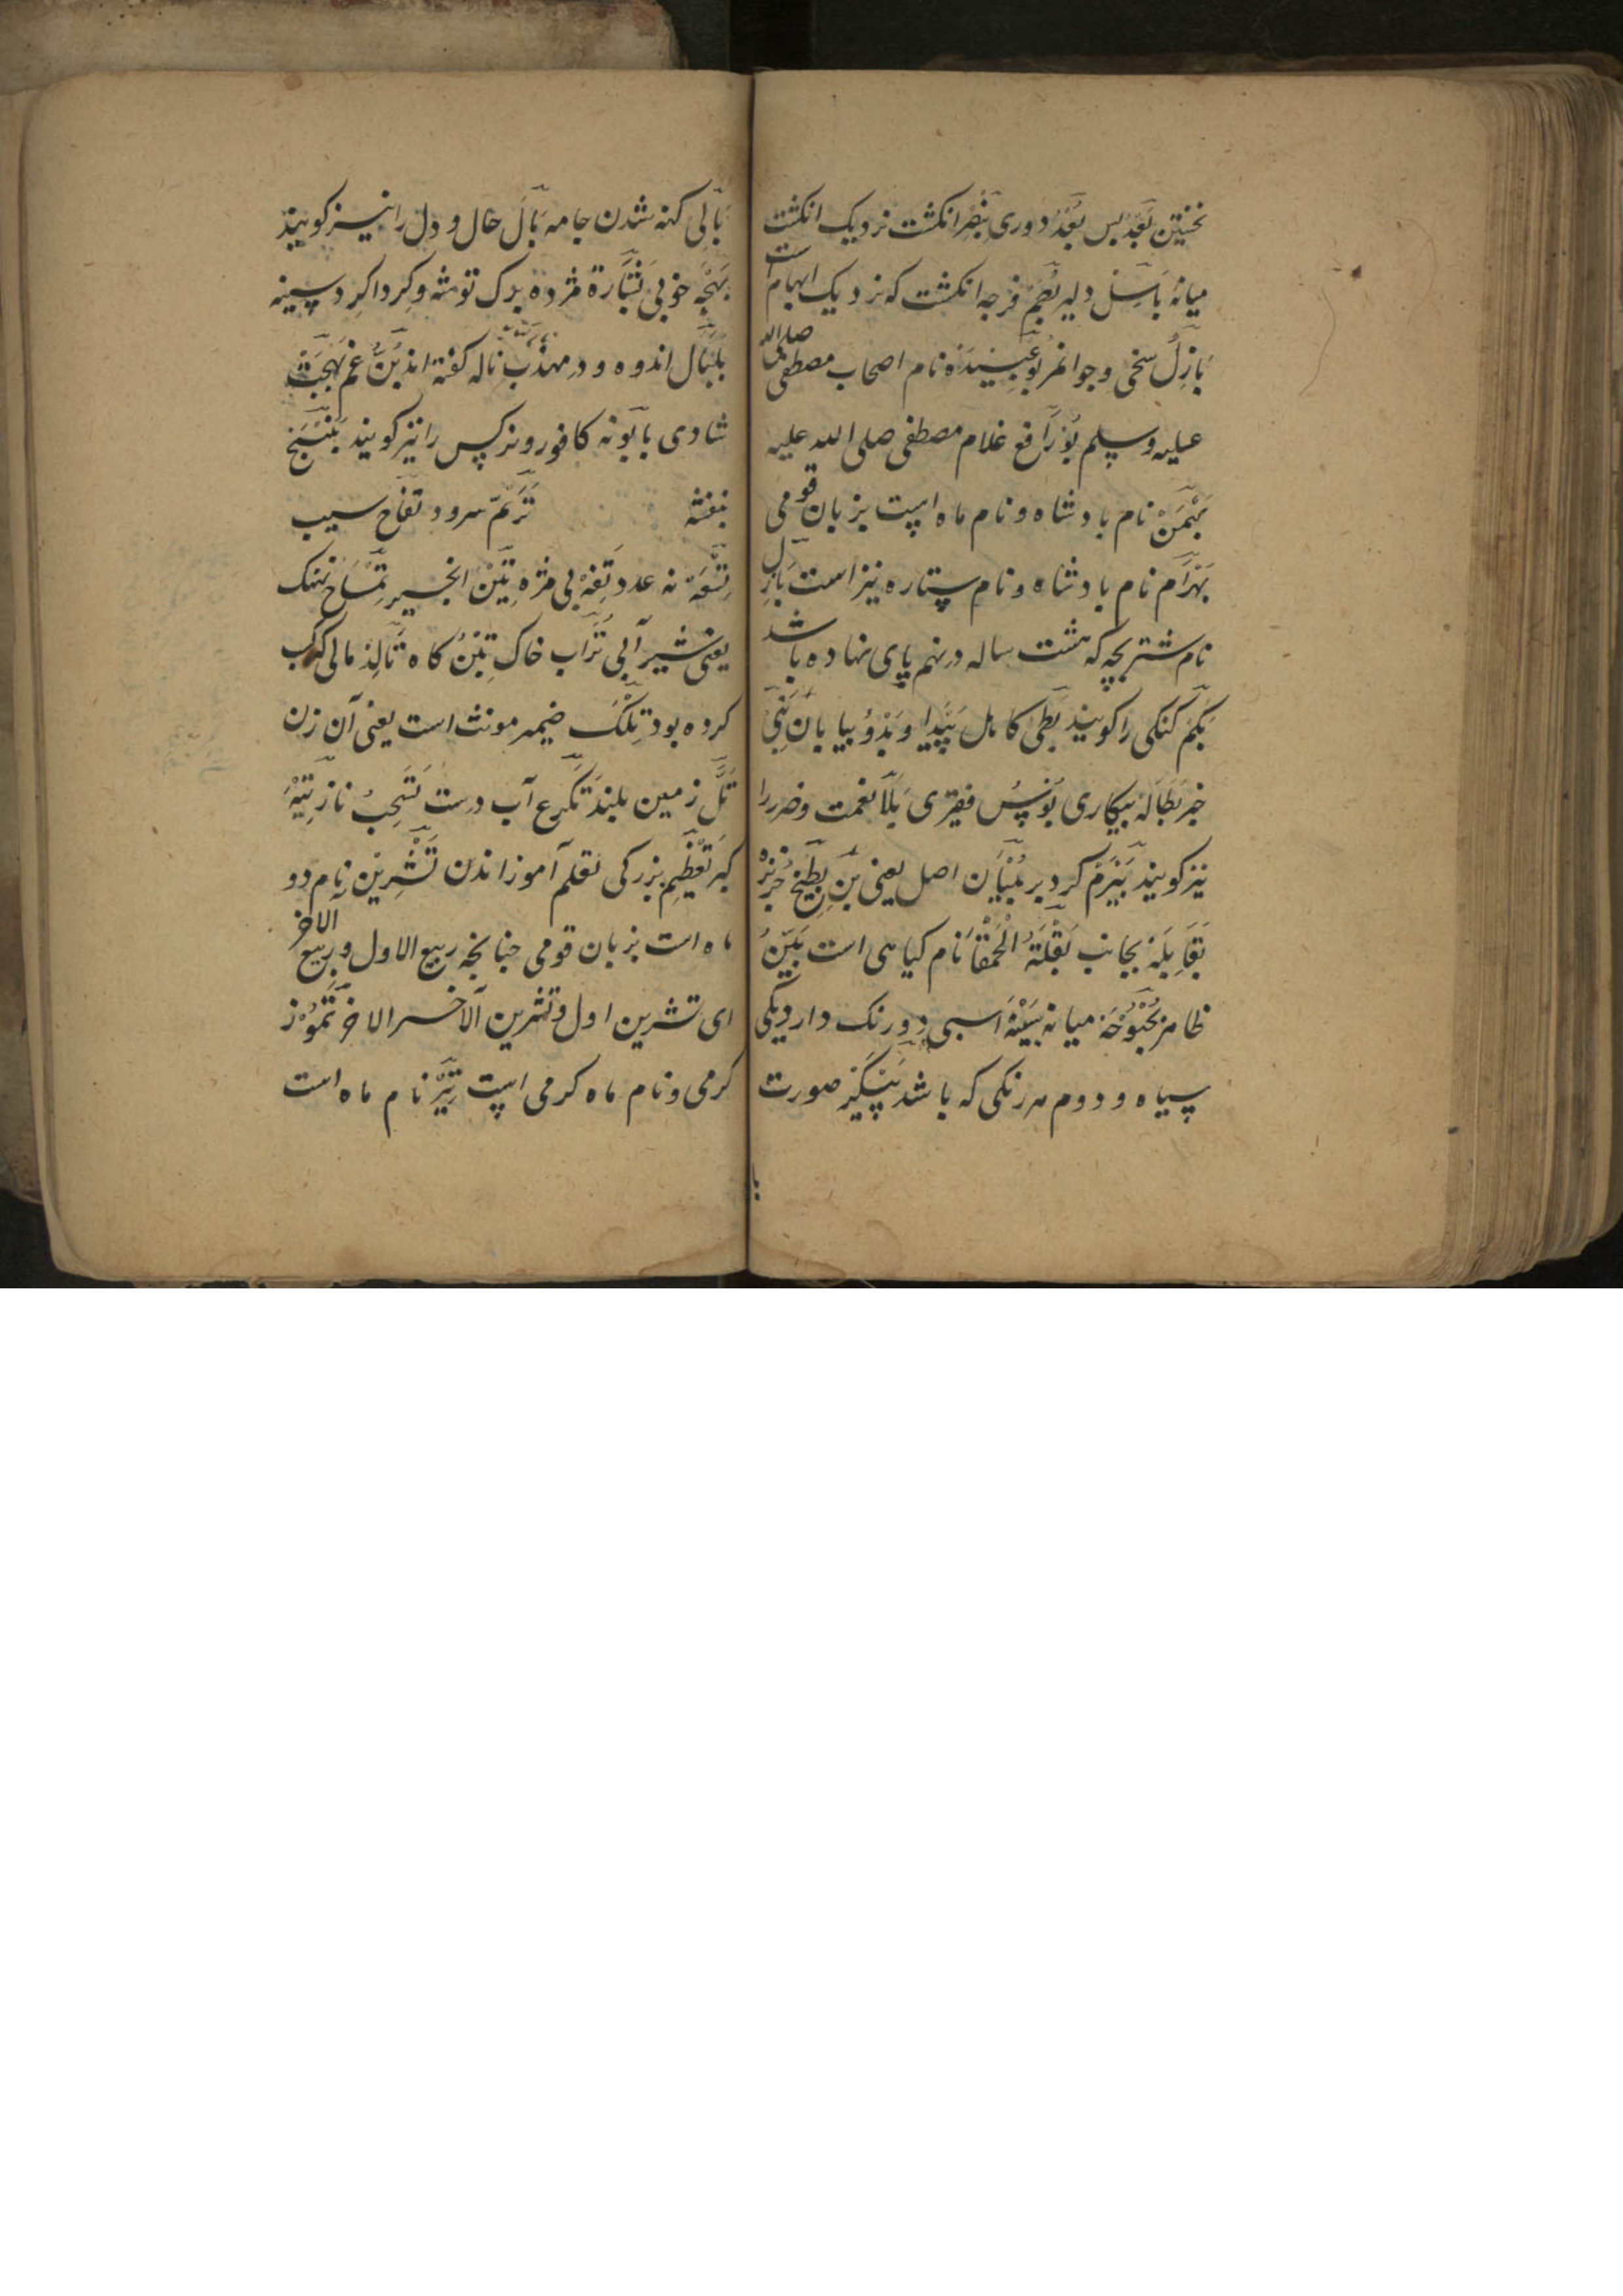 نخستین بَعْدْ پس بُعْدْ دوری بِنْصِرْ انکشت نزدیک انکشت
میانه بَاسِلْ دلیر بُصْم فرجه انکشت که نزدیک ابهام است
بَاذِلْ سخی و جوانمرد بُوعُبَیْدَه نام اصحاب مصطفی صلی الله
علیه وسلم بُورَافع غلام مصطفی صلی الله علیه
بَهْمَنْ نام بادشاه و نام ماه است بزبان قومی
بَهْرَام نام بادشاه و نام ستاره نیز است بَازِل
نام شتر بچه که هشت ساله در نهم پای نهاده باشد
بَکَمْ کنکی را کویند بَطِی کاهل بَیْدا و بَدْوْ بیابان
خبر بَطَالَة بیکاری بُوْسْ فقیری بَلَا نعمت و ضرر را
نیز کویند بَیْرَمْ کرد بر بُنْیَان اصل یعنی بن بِطِّیْخ خربزه
بجانب بَقْلَةُ الْحَمْقَا نام کیاهی است بَیِّنْ
ظاهر بُحْبُوْحَة میانه اسبی دو رنک دارد یکی
سیاه و دوم هر رنکی که باشد پَیْکَرْ صورت
بَالِی کهنه شدن جامه بَالْ حال و دل را نیز کویند
بَهْجَة خوبی بَشَارَة مژده برک توشه و کرداکرد سینه
بَلْبَال اندوه و در مهذب ناله کفته اند بَثّ غم بَهْجَتْ
شادی بابونه کافور و نرکس را نیز کویند بَنَفْسَج
بنفشه تَرَنُّمْ سرود تفاح سیب
تِسْعَة نه عدد تَفِهْ بی مزه تِیْنْ انجیر تِمْسَاح نهنک
یعنی شیر آبی تُرَاب خاک تِبْنْ کاه تَالِدْ مالی که کسب
کرده بود تِلْکَ ضمیر مونث است یعنی آن زن
تَلّ زمین بلند تَکَرُّع آب دست ناز تِیْهْ
کبر تَعْظِیْم بزرکی تعلم آموزاندن تَشْرِیْن نام دو
ماه است بزبان قومی چنانچه ربیع الاول و ربیع الاخر
ای تشرین اول و تشرین الآخر الاخر تَمُّوْز
کرمی و نام ماه کرمی است تِیْرْ نام ماه است
با